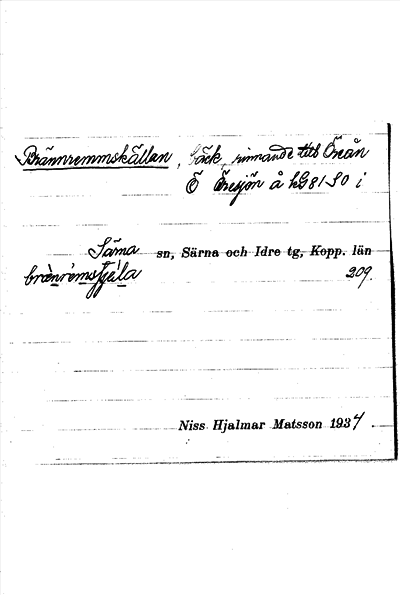 Brännremmskällan, bäck rinnande till Öreån
Ö Öresjön å kG 81 SO i
Särna sn, Särna och Idre tg, Kopp. län
brèn‌remsʃɟẹla 209.
Niss Hjalmar Matsson 1937.